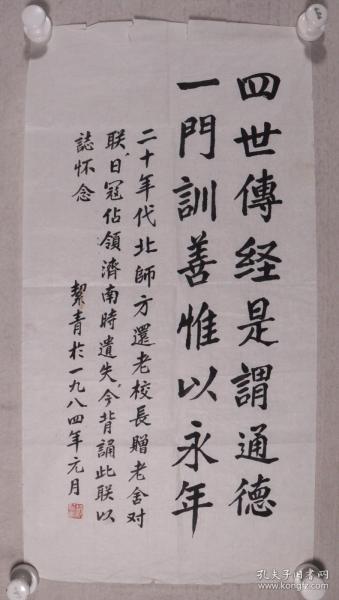 四世傳経是謂通德
一門訓善惟以永年
二十年代北師方還老校長贈老舍对
联,日冠佔領濟南時遺失,今背誦此联以
誌怀念
絜青於一九八四年元月
孔夫子旧书网